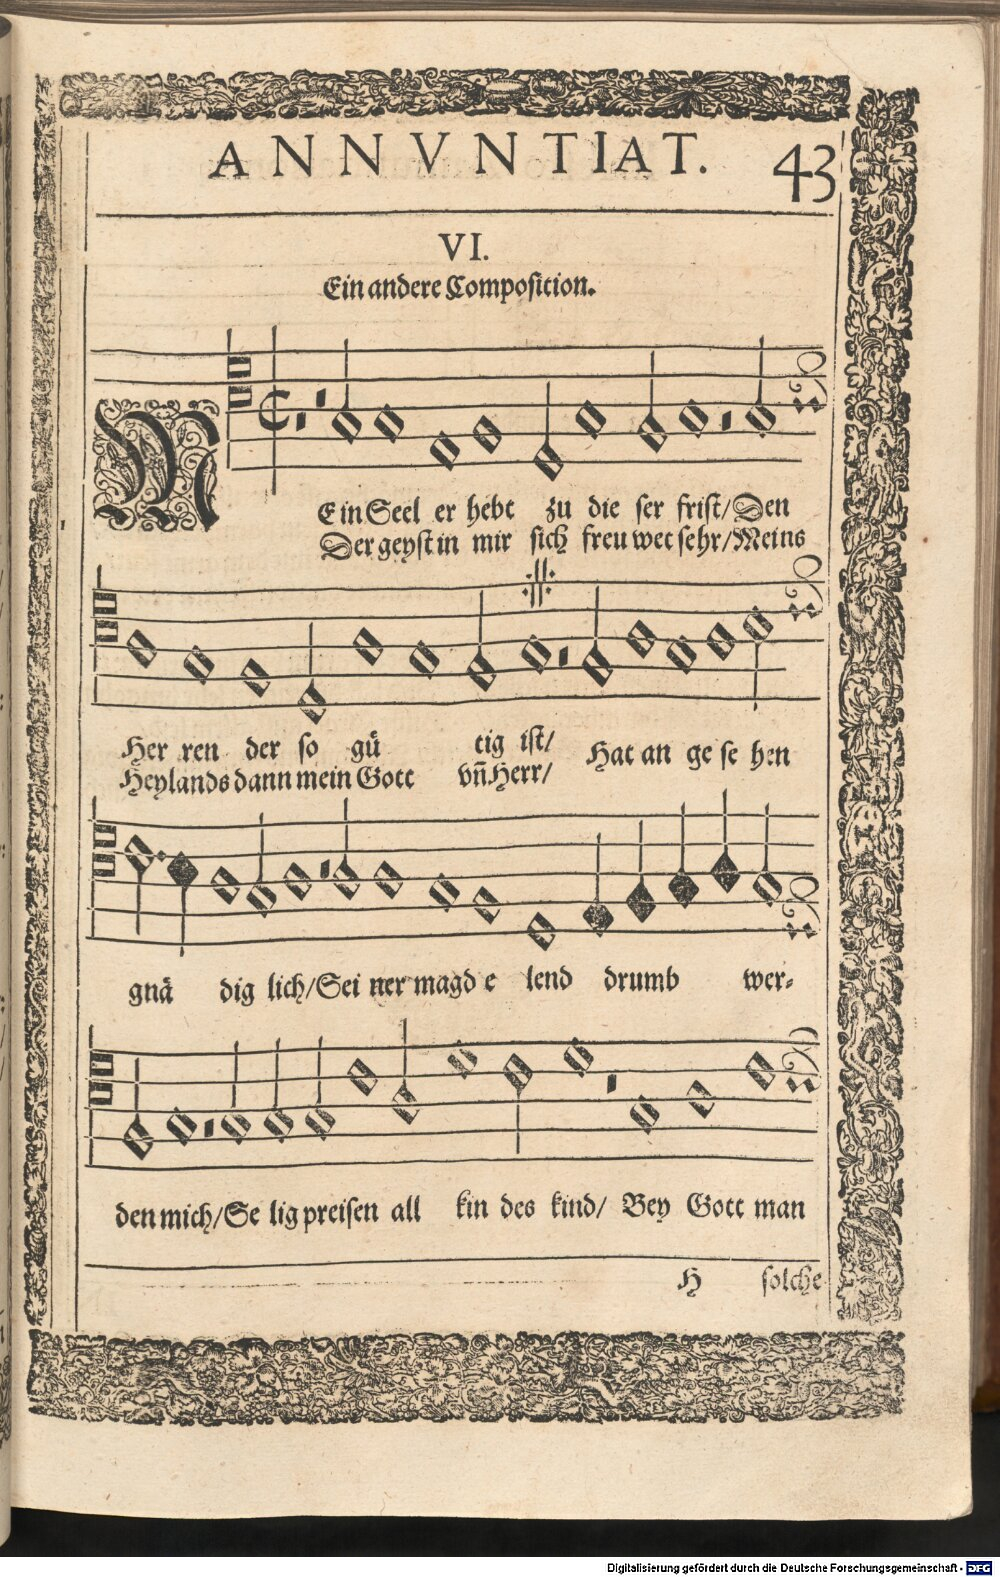 ANNVNTIAT. 43
VI.
Ein andere Composition.
MEin Seel er hebt zu die ser frist/ Den
Der geyst in mir sich freu wet sehr/ Meins
Her ren der so guͤ tig ist/ Hat an ge se hen
Heylands dann mein Gott vn̄ Herr/
gnaͤ dig lich/ Sei ner magd e lend drumb wer-
den mich/ Se lig preisen all kin des kind/ Bey Gott man
H solche
Digitalisierung gefördert durch die Deutsche Forschungsgemeinschaft - DFG